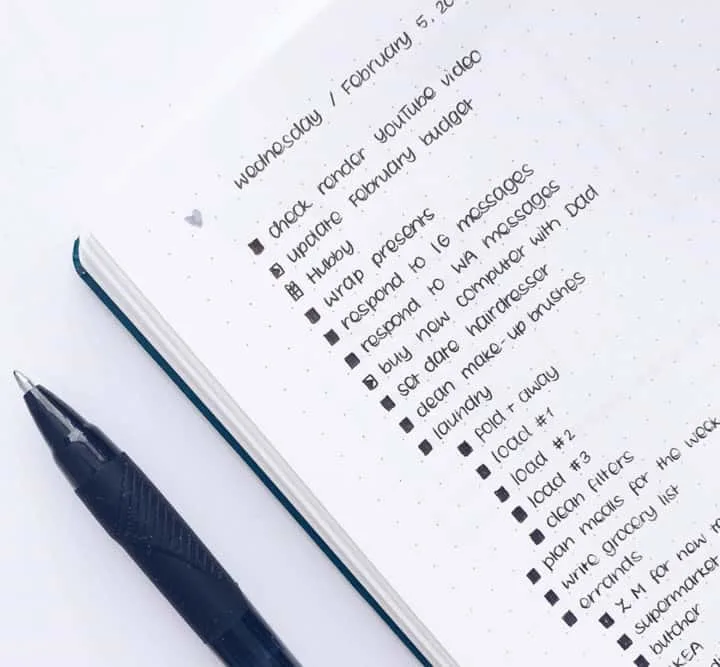 wednesday / February 5, 20
check render YouTube video
update February budget
Hubby
wrap presents
respond to IG messages
respond to WA messages
buy new computer with Dad
set date hairdresser
clean make-up brushes
laundry
fold + away
load #1
load #2
load #3
clean filters
plan meals for the week
write grocery list
errands
M for new
supermarket
butcher
KEA